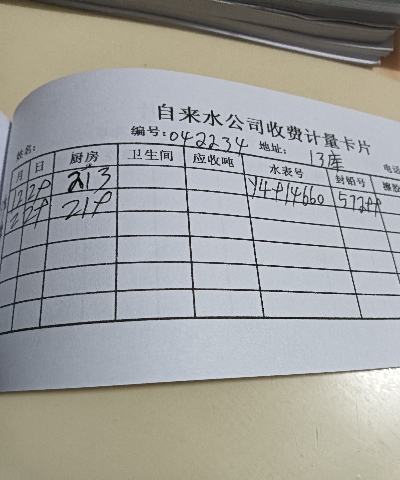 自来水公司收费计量卡片
姓名: 编号:042234 地址: 13座 电话
月 日 厨房 卫生间 应收吨 水表号 封铅号
12 29 213 Y4914660 57299
2 29 219